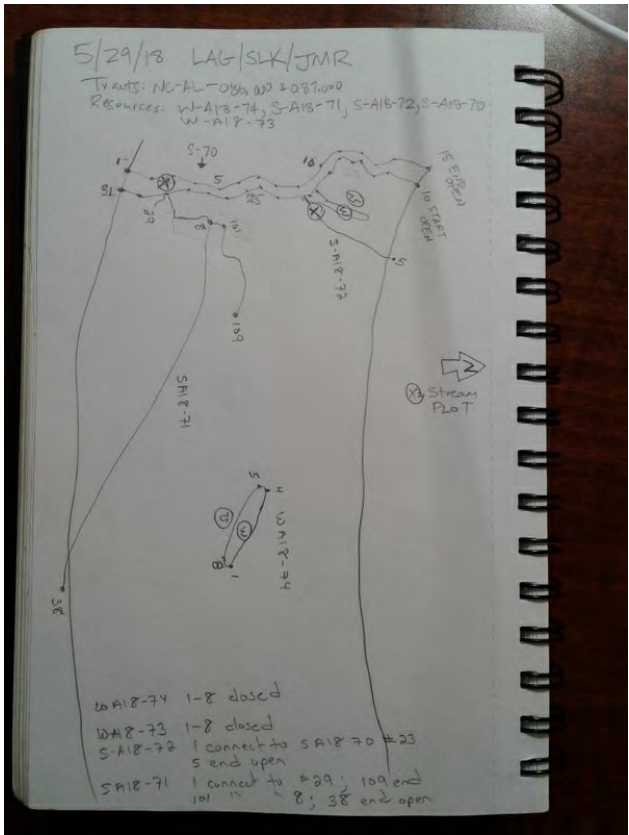 5/29/18 LAG/SLK/JMR
Tracts: NC-AL-086.000 & 087.000
Resources: W-A18-74, S-A18-71, S-A18-72, S-A18-70
W-A18-73
S-70
1
5
10
15 END OPEN
16 START OPEN
X
29
8
101
109
X
W
S-A18-72
5
N
X Stream
PLOT
SA18-71
5
4
U
W
8
1
WA18-74
38
WA18-74 1-8 closed
WA18-73 1-8 closed
S-A18-72 1 connect to SA18 70 #23
5 end open
SA18-71 1 connect to #29; 109 end
101 " " 8; 38 end open